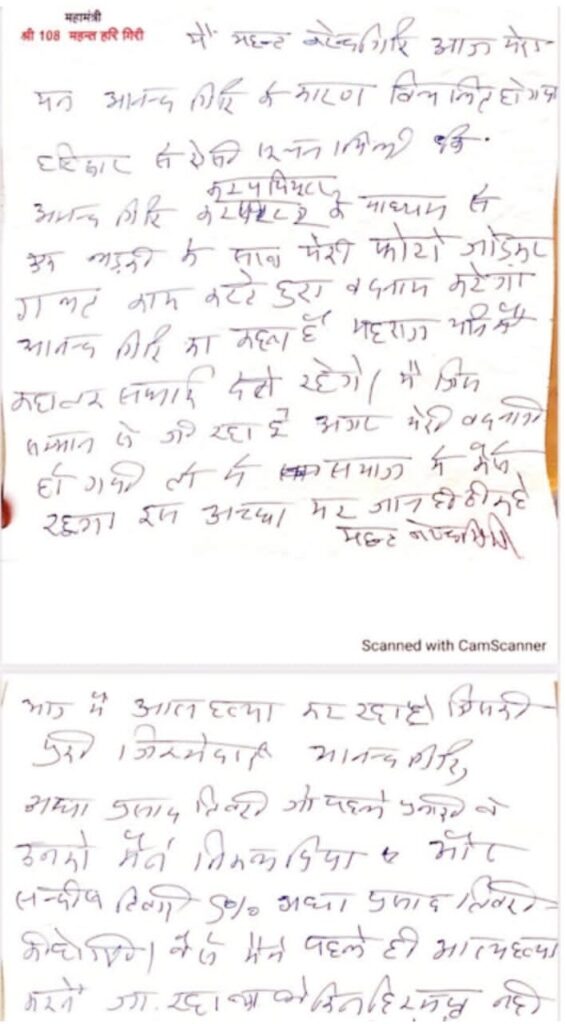 महामंत्री
श्री 108 महन्त हरि गिरी
मैं महन्त नरेन्द्र गिरि आज मेरा
मन आनन्द गिरि के कारण विचलित हो गया
हरिद्वार से ऐसी सूचना मिली कि
कम्प्यूटर
आनन्द गिरि के माध्यम से
एक लड़की के साथ मेरी फोटो जोड़कर
गलत काम करते हुए बदनाम करेगा
आनन्द गिरि का कहना है महराज यानि मैं
कहा तक सफाई देते रहेगे। मैं जिस
सम्मान से जी रहा हूँ अगर मेरी बदनामी
हो गयी तो मैं समाज में कैसे
रहूगा इस अच्छा मर जाना ही ठीक है
महन्त नरेन्द्र गिरि
Scanned with CamScanner
आज मैं आत्महत्या कर रहा हूं जिसकी
पूरी जिम्मेदारी आनन्द गिरि,
आद्या प्रसाद तिवारी जो पहले पुजारी थे
उनको मैने निकाल दिया और
सन्दीप तिवारी S/o आद्या प्रसाद तिवारी
की होगी। वैसे मैने पहले ही आत्महत्या
करने जा रहा था हिम्मत नही